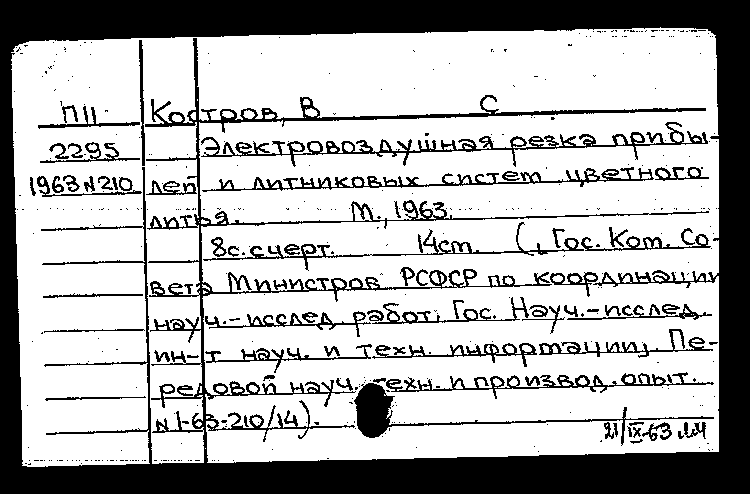 П11 Костров, В С
2295 Электровоздушная резка прибы-
1963 N210 лей и литниковых систем цветного
литья. М., 1963.
8с. счерт. 14ст. (, Гос. Ком. Со-
вета Министров РСФСР по координации
науч.-исслед. работ; Гос. Науч.-исслед.
ин-т науч. и техн. информации, Пе-
редовой науч. техн. и производ. опыт.
N 1-63-210/14).
21/IX-63